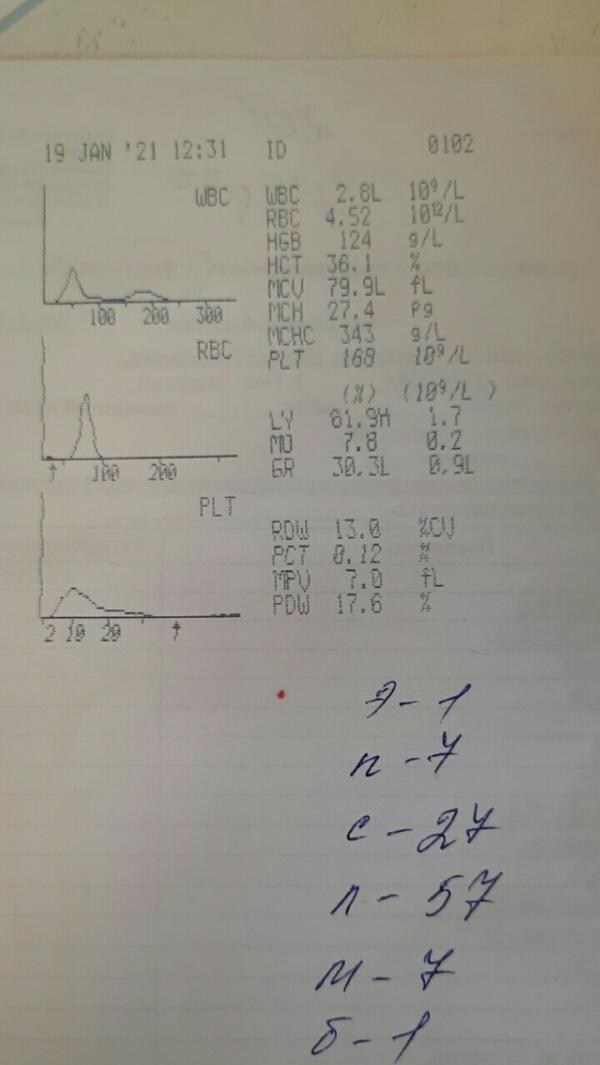 19 JAN '21 12:31 ID 0102
WBC
WBC 2.8L 10⁹/L
RBC 4.52 10¹²/L
HGB 124 g/L
HCT 36.1 %
MCV 79.9L fL
MCH 27.4 Pg
100 200 300
MCHC 343 g/L
RBC
PLT 168 10⁹/L
(%) (10⁹/L )
LY 61.9H 1.7
MO 7.8 0.2
GR 30.3L 0.9L
100 200
PLT
RDW 13.0 %CV
PCT 0.12 %
MPV 7.0 fL
PDW 17.6 %
2 10 20
Э - 1
п - 7
с - 27
л - 57
м - 7
б - 1